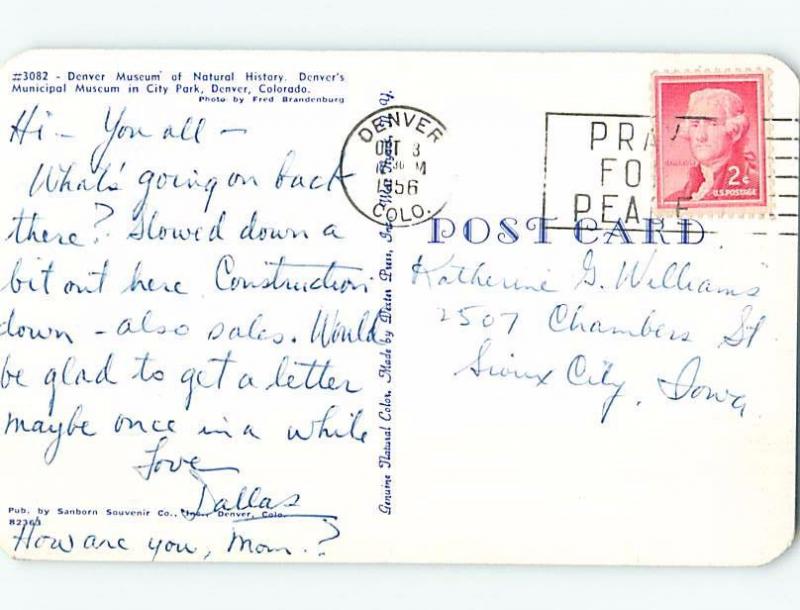 #3082 - Denver Museum of Natural History. Denver's
Municipal Museum in City Park, Denver, Colorado.
Photo by Fred Brandenburg
Hi - You all -
What's going on back
there? Slowed down a
bit out here. Construction
down - also sales. Would
be glad to get a letter
maybe once in a while
Love
Dallas
Pub. by Sanborn Souvenir Co., Inc., Denver, Colo.
82363
How are you, Mom.?
Genuine Natural Color. Made by Dexter Press, Inc. West Nyack, N.Y.
DENVER
OCT 3
M
1956
COLO.
PRAY
FO
PEACE
2¢
U.S. POSTAGE
POST CARD
Katherine G. Williams
2507 Chambers St.
Sioux City, Iowa.